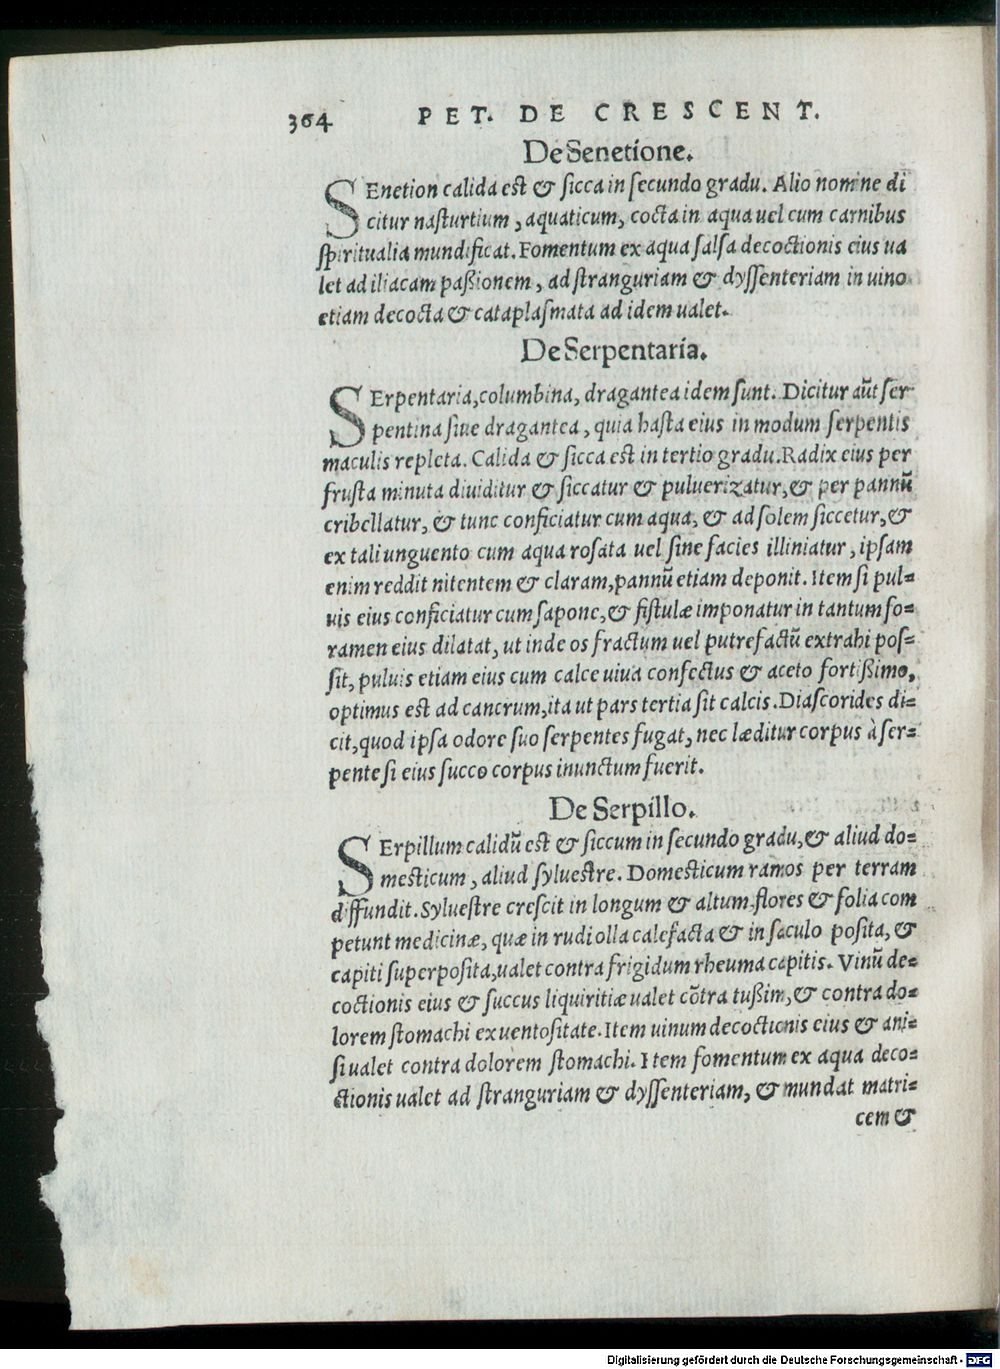 364 PET. DE CRESCENT.
De Senetione.
SEnetion calida est & sicca in secundo gradu. Alio nomine di
citur nasturtium, aquaticum, cocta in aqua uel cum carnibus
spiritualia mundificat. Fomentum ex aqua salsa decoctionis eius ua
let ad iliacam passionem, ad stranguriam & dyssenteriam in uino
etiam decocta & cataplasmata ad idem ualet.
De Serpentaria.
SErpentaria, columbina, dragantea idem sunt. Dicitur aũt ser
pentina siue dragantea, quia hasta eius in modum serpentis
maculis repleta. Calida & sicca est in tertio gradu. Radix eius per
frusta minuta diuiditur & siccatur & puluerizatur, & per pannũ
cribellatur, & tunc conficiatur cum aqua, & ad solem siccetur, &
ex tali unguento cum aqua rosata uel sine facies illiniatur, ipsam
enim reddit nitentem & claram, pannũ etiam deponit. Item si pul=
uis eius conficiatur cum sapone, & fistulæ imponatur in tantum fo=
ramen eius dilatat, ut inde os fractum uel putrefactũ extrahi pos=
sit, puluis etiam eius cum calce uiua confectus & aceto fortissimo,
optimus est ad cancrum, ita ut pars tertia sit calcis. Diascorides di=
cit, quod ipsa odore suo serpentes fugat, nec læditur corpus à ser=
pente si eius succo corpus inunctum fuerit.
De Serpillo.
SErpillum calidũ est & siccum in secundo gradu, & aliud do=
mesticum, aliud syluestre. Domesticum ramos per terram
diffundit. Syluestre crescit in longum & altum, flores & folia com
petunt medicinæ, quæ in rudi olla calefacta & in saculo posita, &
capiti superposita, ualet contra frigidum rheuma capitis. Vinũ de=
coctionis eius & succus liquiritiæ ualet cõtra tussim, & contra do=
lorem stomachi ex uentositate. Item uinum decoctionis eius & ani=
si ualet contra dolorem stomachi. Item fomentum ex aqua deco=
ctionis ualet ad stranguriam & dyssenteriam, & mundat matri=
cem &
Digitalisierung gefördert durch die Deutsche Forschungsgemeinschaft - DFG